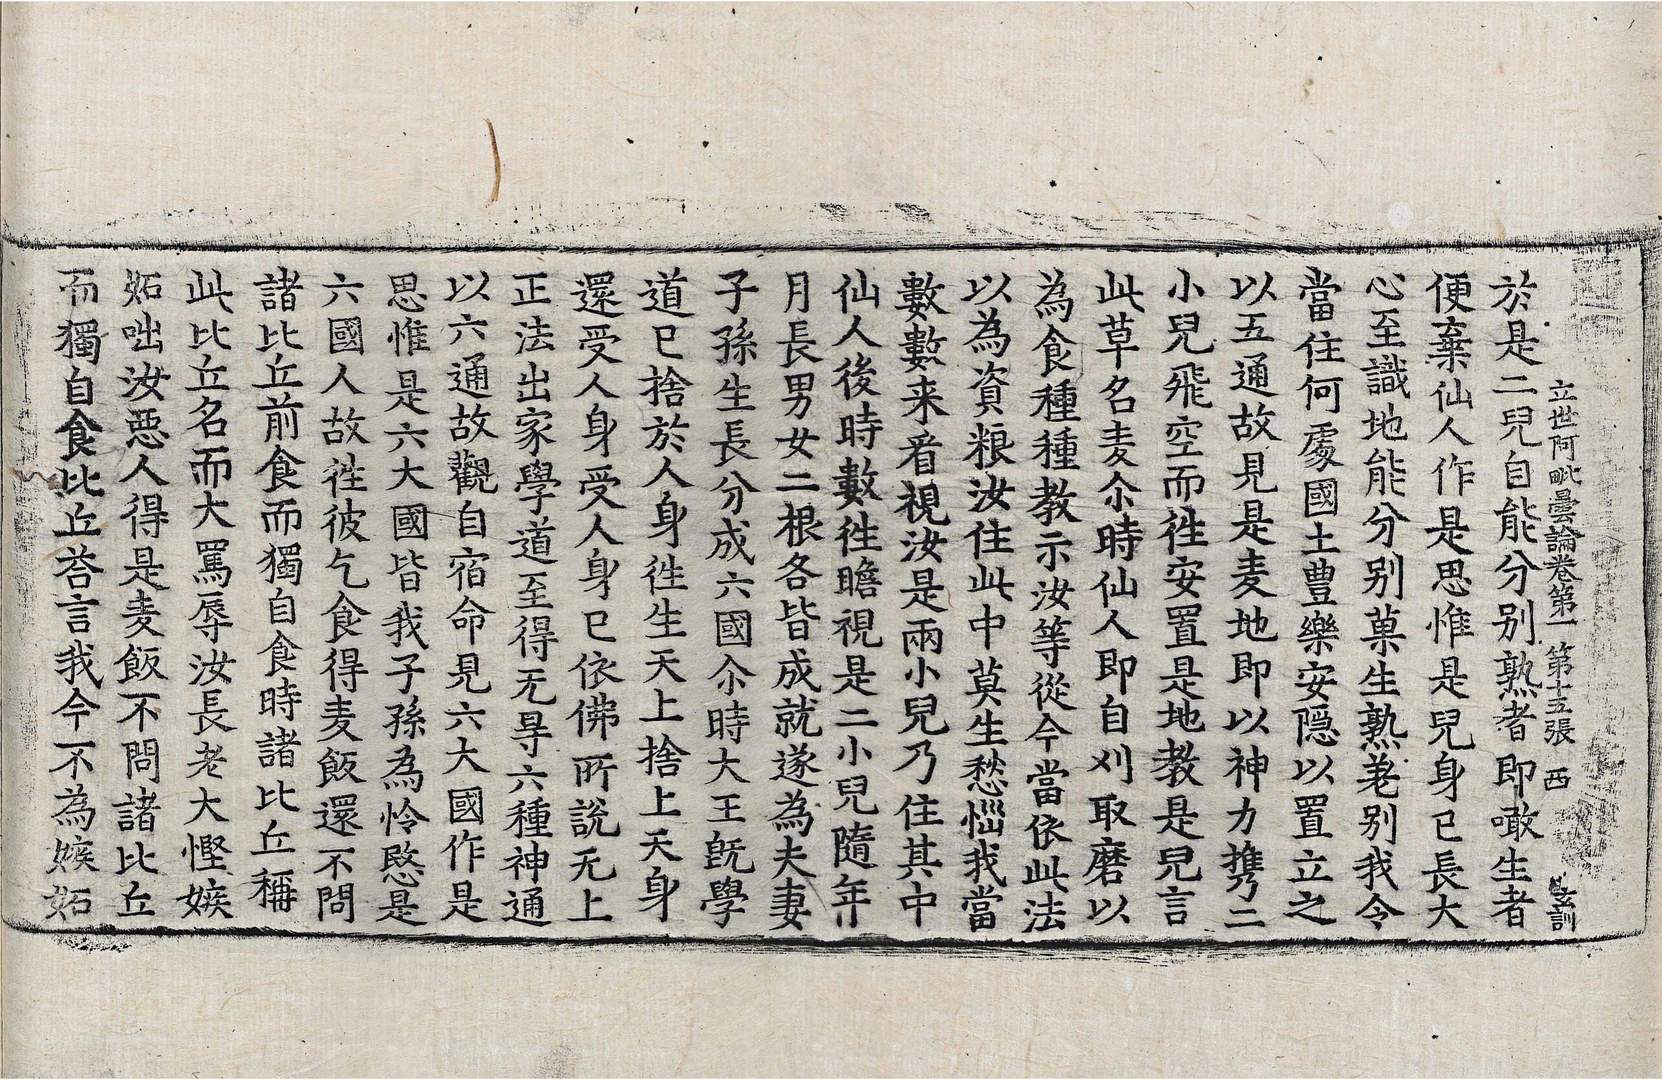 立世阿毗曇論卷第一 第十五張 西 玄訓
於是二兒自能分别熟者即噉生者
便棄仙人作是思惟是兒身已長大
心至識地能分别菓生熟差别我今
當住何處國土豊樂安隠以置立之
以五通故見是麦地即以神力携二
小兒飛空而徃安置是地教是兒言
此草名麦尒時仙人即自刈取磨以
為食種種教示汝等從今當依此法
以為資粮汝住此中莫生愁惱我當
數數来看視汝是兩小兒乃住其中
仙人後時數徃瞻視是二小兒隨年
月長男女二根各皆成就遂為夫妻
子孫生長分成六國尒時大王旣學
道已捨於人身徃生天上捨上天身
還受人身受人身已依佛所說无上
正法出家學道至得无㝵六種神通
以六通故觀自宿命見六大國作是
思惟是六大國皆我子孫為怜愍是
六國人故徃彼乞食得麦飯還不問
諸比丘前食而獨自食時諸比丘稱
此比丘名而大罵辱汝長老大慳嫉
妬咄汝惡人得是麦飯不問諸比丘
而獨自食比丘荅言我今不為嫉妬